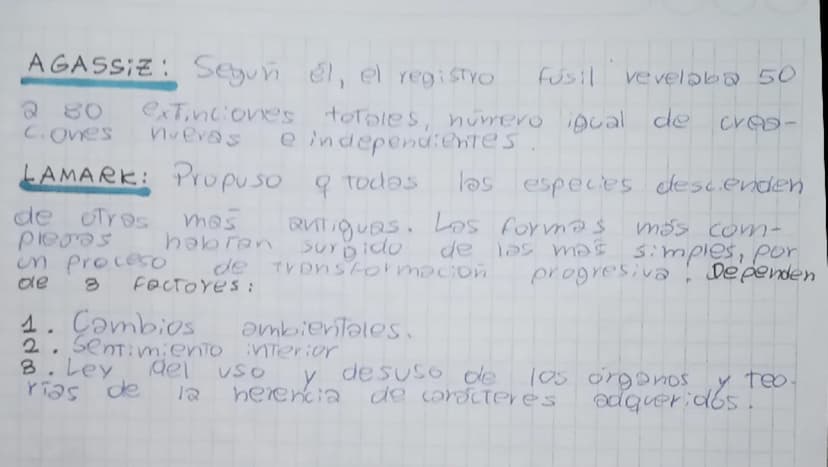 AGASSiZ: Según él, el registro fósil revelaba 50
a 80 extinciones totales, número igual de crea-
ciones nuevas e independientes.
LAMARK: Propuso q todas las especies descienden
de otras mas antiguas. Las formas más com-
plejas habrían surgido de las mas simples, por
un proceso de transformación progresiva. Dependen
de 3 factores:
1. Cambios ambientales.
2. Sentimiento interior
3. Ley del uso y desuso de los órganos y teo-
rías de la herencia de carácteres adqueridos.